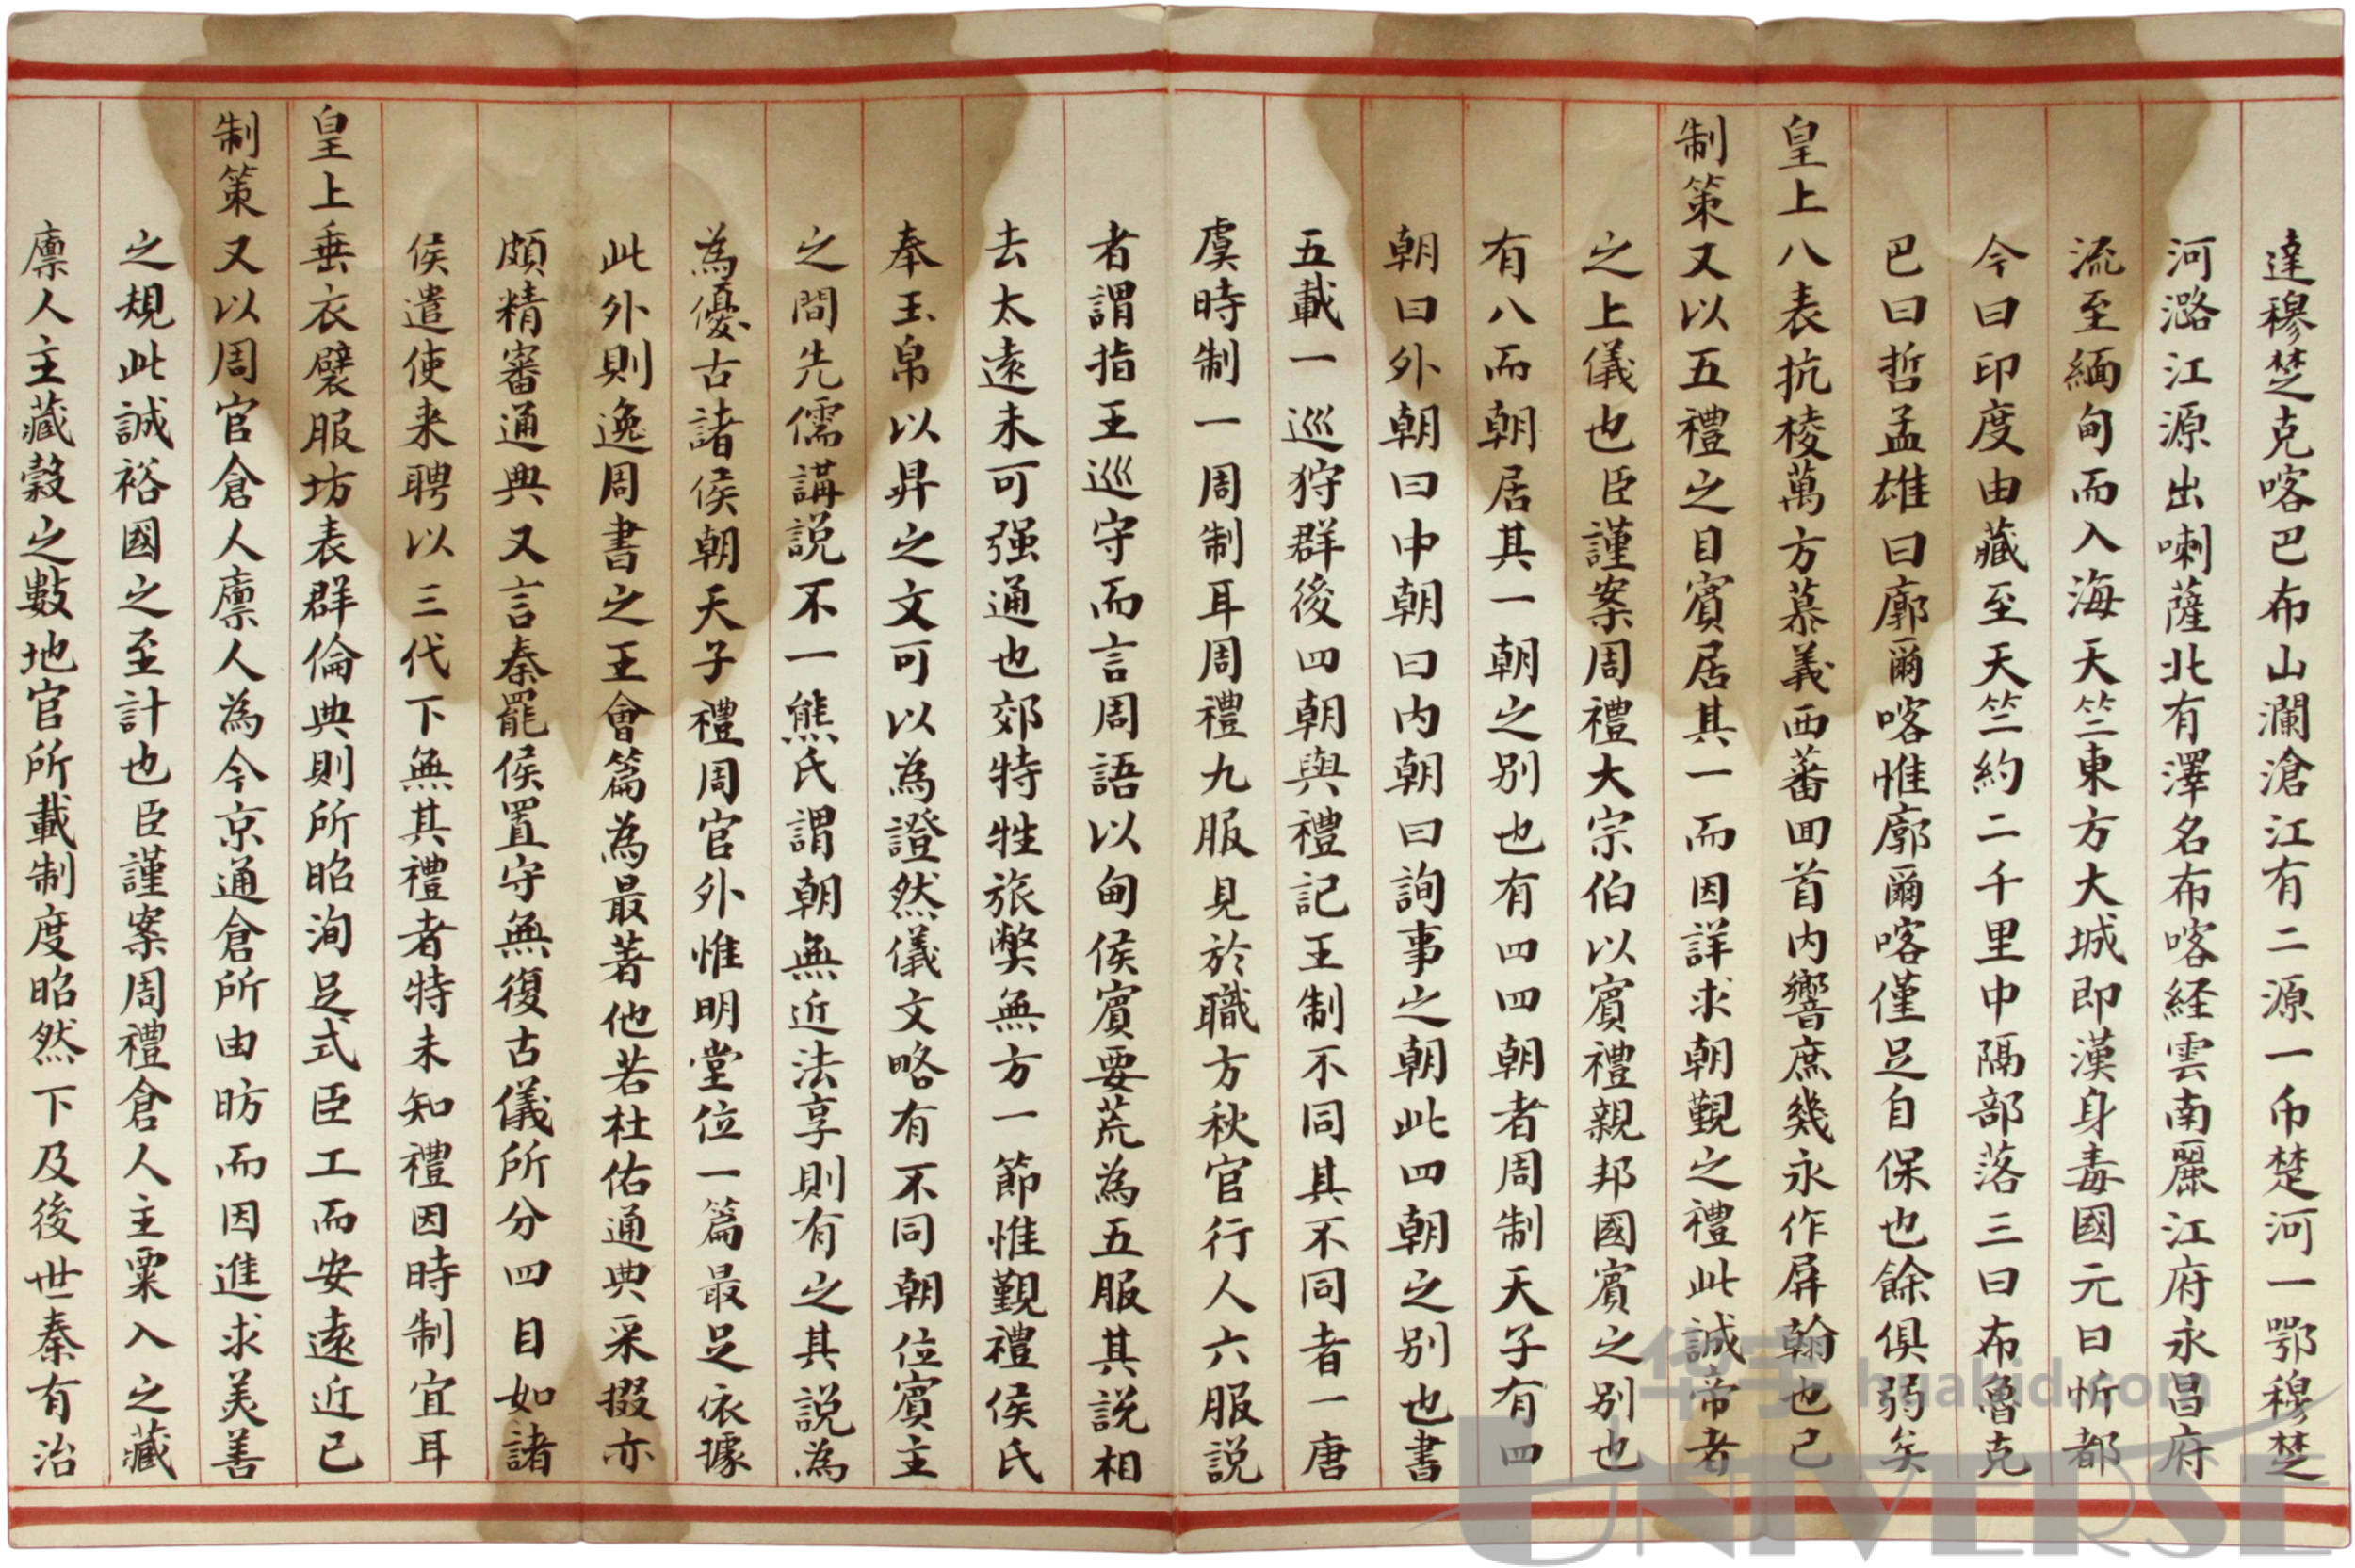 達穆楚克喀巴布山瀾滄江有二源一帀楚河一鄂穆楚
河潞江源出喇薩北有澤名布喀経雲南麗江府永昌府
流至緬甸而入海天竺東方大城即漢身毒國元曰忻都
今曰印度由藏至天竺約二千里中隔部落三曰布魯克
巴曰哲孟雄曰廓爾喀惟廓爾喀僅足自保也餘俱弱矣
皇上八表抗稜萬方慕義西蕃回首内響庶幾永作屏翰也已
制策又以五禮之目賓居其一而因詳求朝覲之禮此誠帝者
之上儀也臣謹案周禮大宗伯以賓禮親邦國賓之别也
有八而朝居其一朝之别也有四四朝者周制天子有四
朝曰外朝曰中朝曰内朝曰詢事之朝此四朝之别也書
五載一巡狩群後四朝與禮記王制不同其不同者一唐
虞時制一周制耳周禮九服見於職方秋官行人六服説
者謂指王巡守而言周語以甸侯賓要荒為五服其説相
去太遠未可强通也郊特牲旅獘無方一節惟覲禮侯氏
奉玉帛以昇之文可以為證然儀文略有不同朝位賓主
之間先儒講説不一熊氏謂朝無近法享則有之其説為
為優古諸侯朝天子禮周官外惟明堂位一篇最足依據
此外則逸周書之王會篇為最著他若杜佑通典采掇亦
頗精審通典又言秦罷侯置守無復古儀所分四目如諸
侯遣使来聘以三代下無其禮者特未知禮因時制宜耳
皇上垂衣襞服坊表群倫典則所昭洵足式臣工而安遠近已
制策又以周官倉人廪人為今京通倉所由昉而因進求美善
之規此誠裕國之至計也臣謹案周禮倉人主粟入之藏
廪人主藏穀之數地官所載制度昭然下及後世秦有治
华宇 huakid.com
UNIVERSE